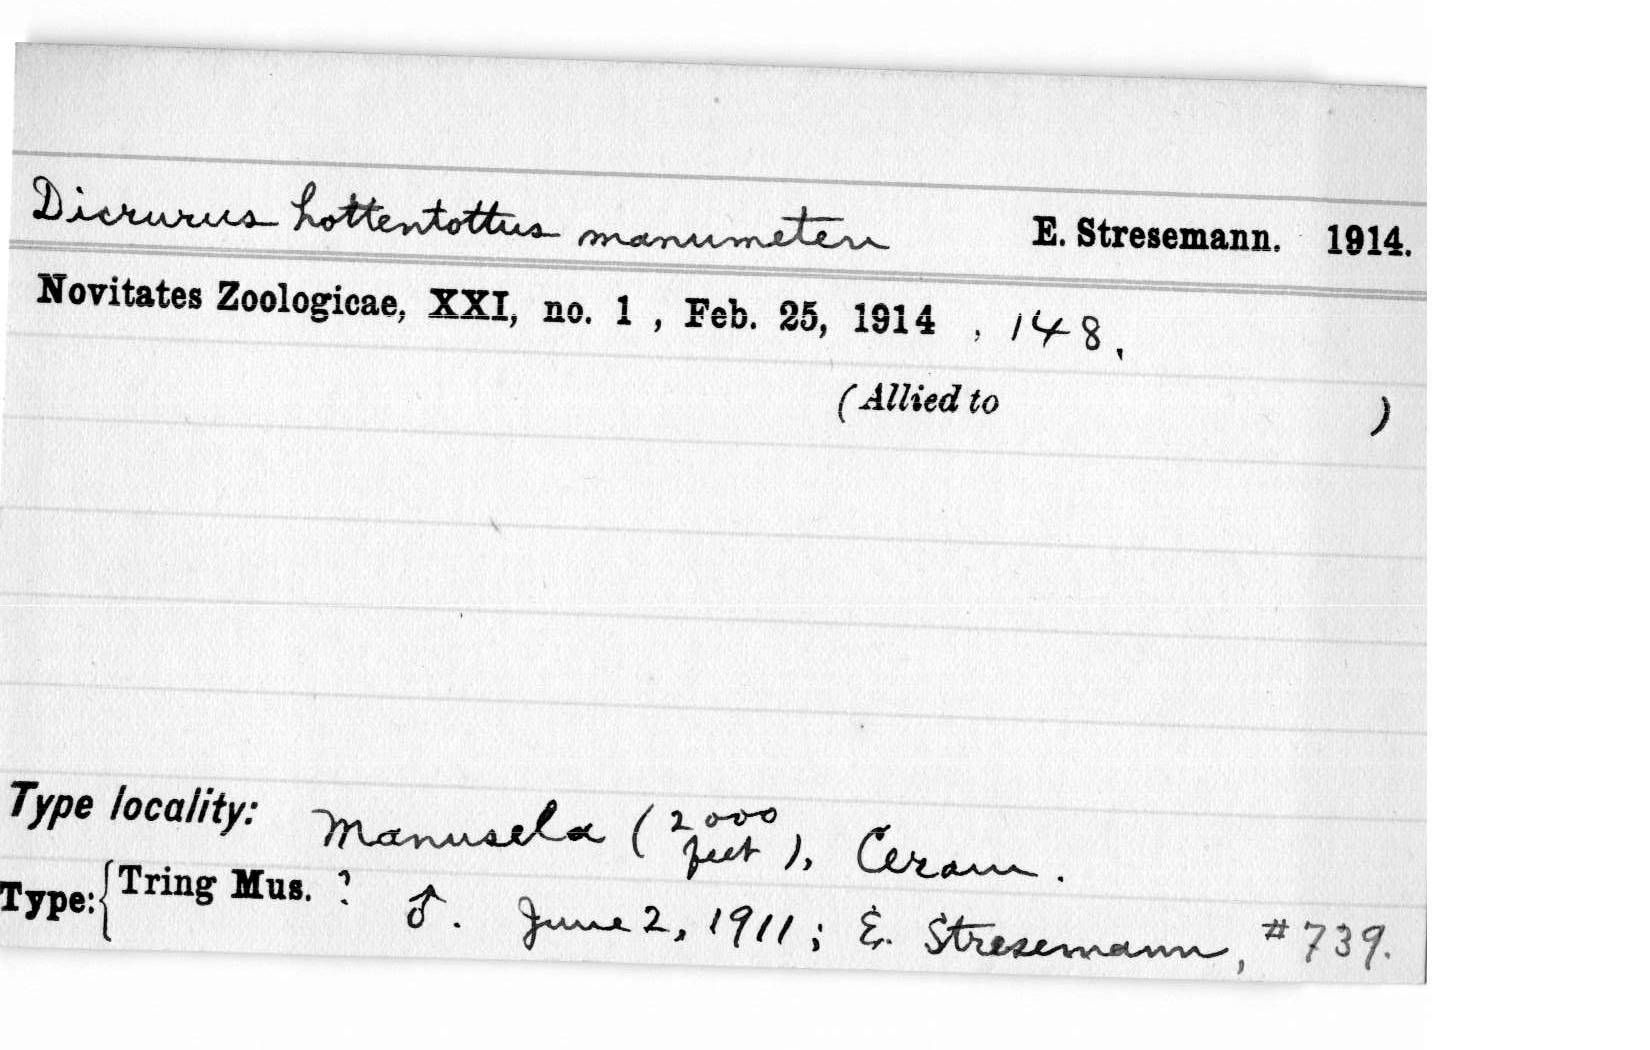 Dicrurus hottentottus manumeten E. Stresemann. 1914.
Novitates Zoologicae, XXI, no. 1 , Feb. 25, 1914 , 148.
(Allied to )
Type locality: Manusela (2000 feet), Ceram.
Type: { Tring Mus. ? ♂. June 2, 1911; E. Stresemann, #739.